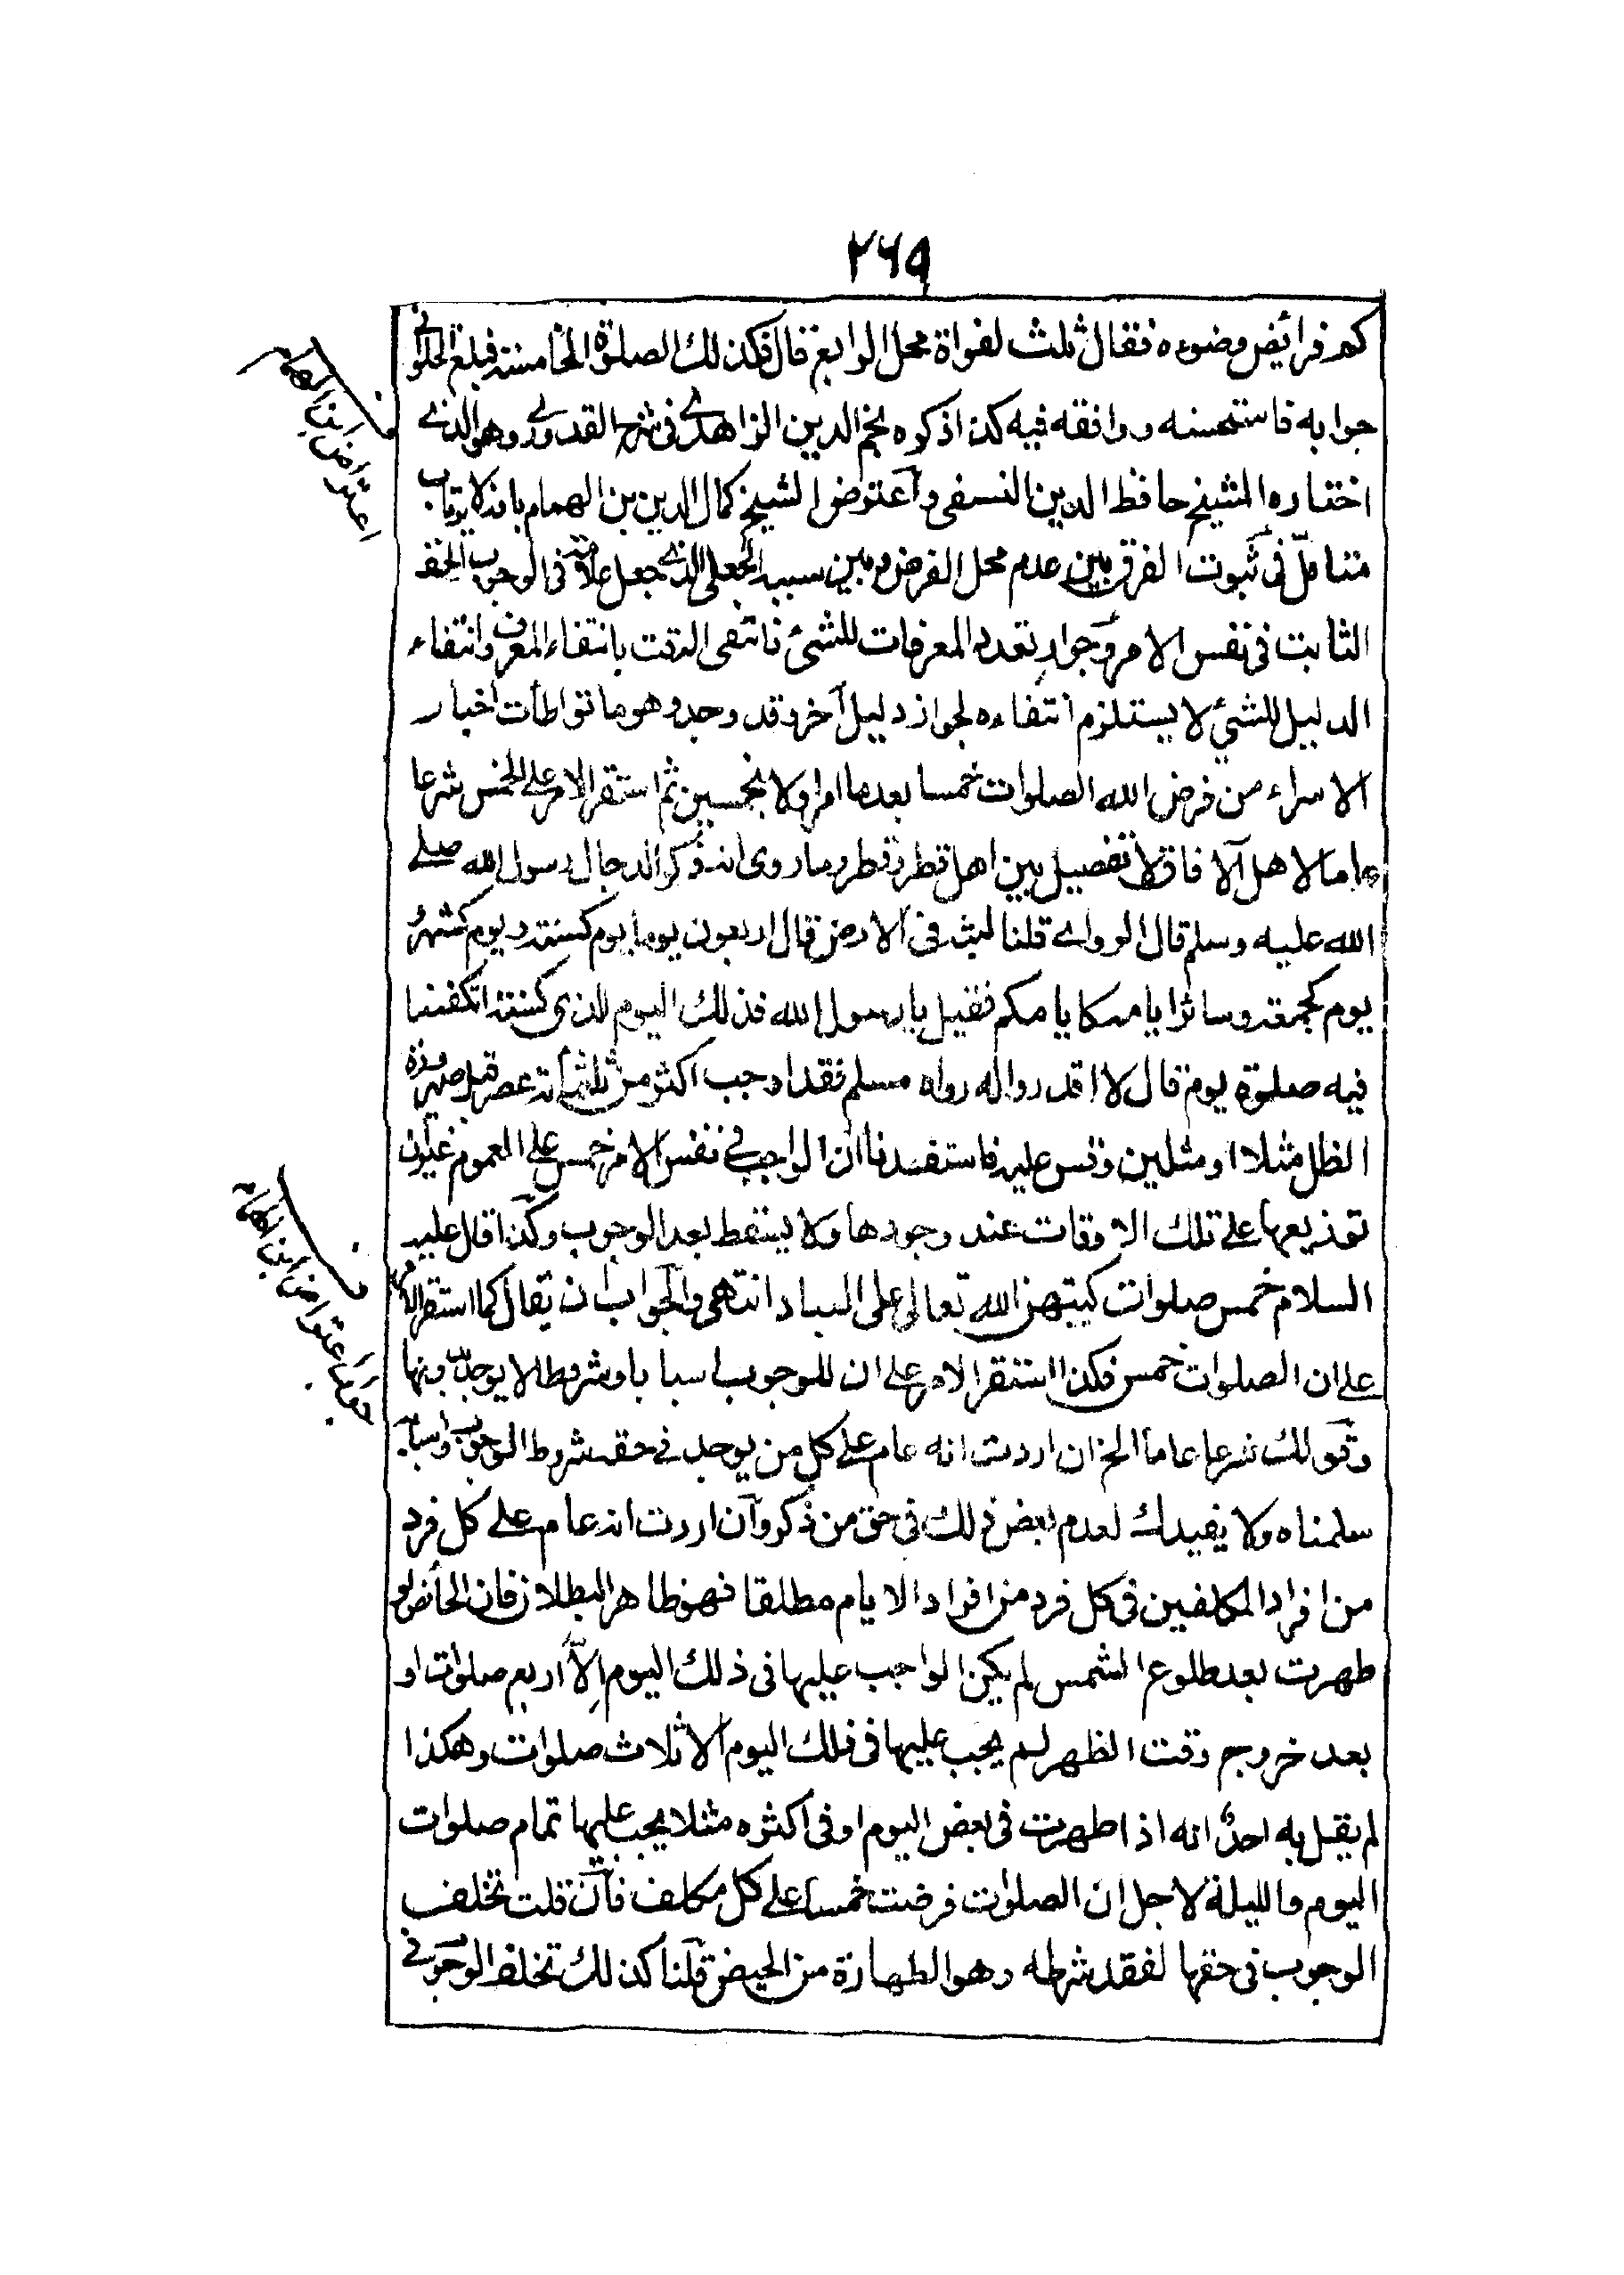 ٢٦٩
كم فرائض وضوءه فقال ثلث لفواة محل الرابع قال فكذلك الصلوة الخامسة فبلغ الحلواني
جوابه فاستحسنه ووافقه فيه كذا ذكره نجم الدين الزاهدي في شرح القدوري وهو الذي
اختاره الشيخ حافظ الدين النسفي واعترض الشيخ كمال الدين بن الهمام بانه لا يرتاب
متامل في ثبوت الفرق بين عدم محل الفرض وبين سببه الجعلي الذي جعل علامة في الوجوب الخفي
الثابت في نفس الامر وجواز تعدد المعرفات للشئ فانتفى الوقت بانتفاء المعرف وانتفاء
الدليل للشئ لا يستلزم انتفاءه لجواز دليل آخر وقد وجد وهو ما تواطأت اخبار
الاسراء من فرض الله الصلوات خمسا بعد ما امر اولا بخمسين ثم استقر الامر على الخمس شرعا
عاما لاهل الآفاق لا تفصيل بين اهل قطر وقطر وما روى انه ذكر الدجال رسول الله صلى
الله عليه وسلم قال الرواي قلنا لبثه في الارض قال اربعون يوما يوم كسنة ويوم كشهر
يوم كجمعة وسائر ايامه كايامكم فقيل يا رسول الله فذلك اليوم الذي كسنة اتكفينا
فيه صلوة يوم قال لا اقدروا له رواه مسلم فقد اوجب اكثر من ثلثمأئة عصر قبل صيرورة
الظل مثلا او مثلين وقس عليه فاستفدنا ان الواجب في نفس الامر خمس على العموم غير ان
توزيعها على تلك الاوقات عند وجودها ولا يسقط بعد الوجوب وكذا قال عليه
السلام خمس صلوات كتبهن الله تعالى على العباد انتهى والجواب ان يقال كما استقر الامر
على ان الصلوات خمس فكذا استقر الامر على ان للوجوب اسبابا وشروطا لا يوجد بدونها
وقولك شرعا عاما الخ ان اردت انه عام على كل من يوجد في حقه شروط الوجوب واسبابه
سلمناه ولا يفيدك لعدم بعض ذلك في حق من ذكر وان اردت انه عام على كل فرد
من افراد المكلفين في كل فرد من افراد الايام مطلقا فهو ظاهر البطلان فان الحائض لو
طهرت بعد طلوع الشمس لم يكن الواجب عليها في ذلك اليوم الا اربع صلوات او
بعد خروج وقت الظهر لم يجب عليها في ذلك اليوم الا ثلاث صلوات وهكذا
لم يقل به احد انه اذا طهرت في بعض اليوم او في اكثره مثلا يجب عليها تمام صلوات
اليوم والليلة لاجل ان الصلوات فرضت خمسا على كل مكلف فان قلت تخلف
الوجوب في حقها لفقد شرطه وهو الطهارة من الحيض قلنا كذلك تخلف الوجوب في
اعتراض ابن الهمام
جواب اعتراض ابن الهمام